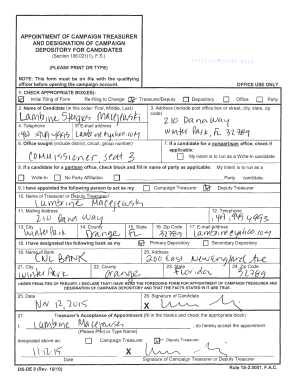 APPOINTMENT OF CAMPAIGN TREASURER
AND DESIGNATION OF CAMPAIGN
DEPOSITORY FOR CANDIDATES
(Section 106.021(1), F.S.)
(PLEASE PRINT OR TYPE)
NOTE: This form must be on file with the qualifying
officer before opening the campaign account.
OFFICE USE ONLY
1. CHECK APPROPRIATE BOX(ES):
Initial Filing of Form Re-filing to Change: Treasurer/Deputy Depository Office Party
2. Name of Candidate (in this order: First, Middle, Last)
3. Address (include post office box or street, city, state, zip
code)
210 Dana way
Winter Park, FL 32789
4. Telephone
5. E-mail address
6. Office sought (include district, circuit, group number)
Commissioner, Seat 3
7. If a candidate for a nonpartisan office, check if
applicable:
My intent is to run as a Write-In candidate.
8. If a candidate for a partisan office, check block and fill in name of party as applicable: My intent is to run as a
Write-In No Party Affiliation Party candidate.
9. I have appointed the following person to act as my Campaign Treasurer Deputy Treasurer
10. Name of Treasurer or Deputy Treasurer
11. Mailing Address
210 Dana Way
12. Telephone
13. City
Winter Park
14. County
Orange
15. State
FL
16. Zip Code
32789
17. E-mail address
18. I have designated the following bank as my Primary Depository Secondary Depository
19. Name of Bank
CNL BANK
20. Address
21. City
Winter Park
22. County
Orange
23. State
Florida
24. Zip Code
32789
UNDER PENALTIES OF PERJURY, I DECLARE THAT I HAVE READ THE FOREGOING FORM FOR APPOINTMENT OF CAMPAIGN TREASURER AND
DESIGNATION OF CAMPAIGN DEPOSITORY AND THAT THE FACTS STATED IN IT ARE TRUE.
25. Date
Nov 12, 2015
26. Signature of Candidate
X
27. Treasurer's Acceptance of Appointment (fill in the blanks and check the appropriate block)
I, , do hereby accept the appointment
(Please Print or Type Name)
designated above as: Campaign Treasurer Deputy Treasurer.
11-12-15
X
Date
Signature of Campaign Treasurer or Deputy Treasurer
DS-DE 9 (Rev. 10/10)
Rule 1S-2.0001, F.A.C.